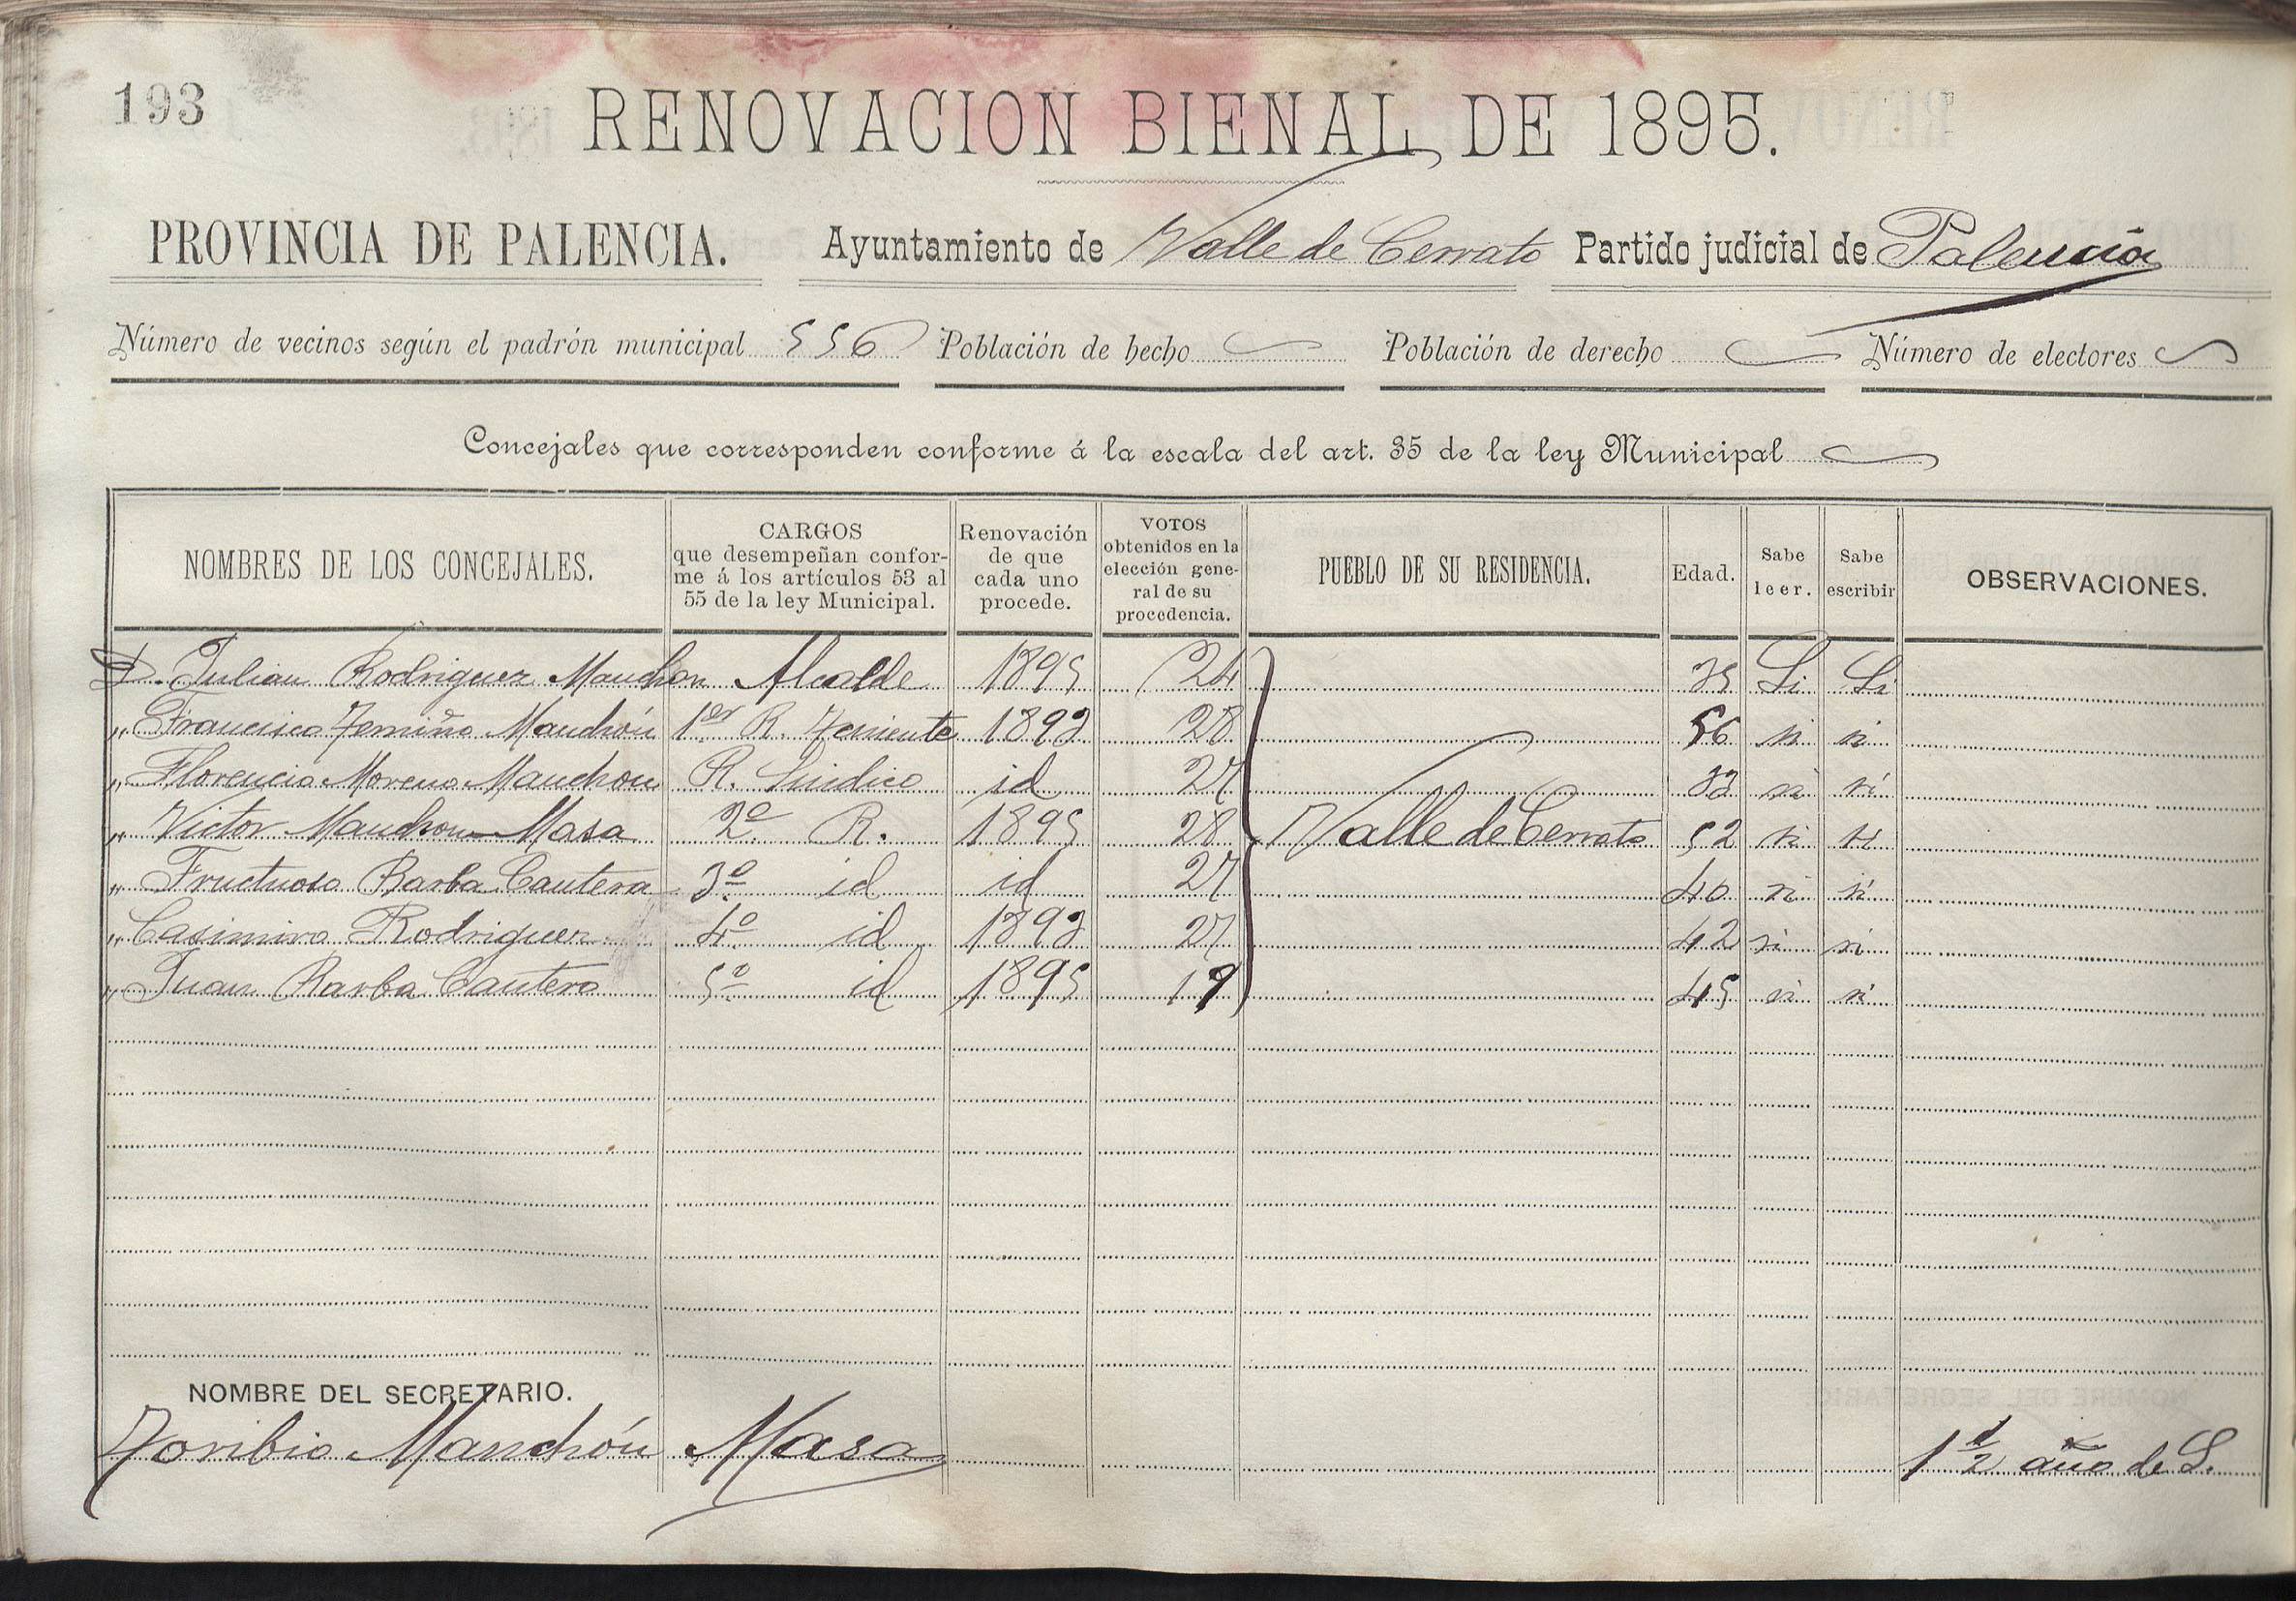 193
RENOVACION BIENAL DE 1895.
PROVINCIA DE PALENCIA. Ayuntamiento de Valle de Cerrato Partido judicial de Palencia
Número de vecinos según el padrón municipal 556 Población de hecho Población de derecho Número de electores
Concejales que corresponden conforme á la escala del art. 35 de la ley Municipal
NOMBRES DE LOS CONCEJALES.
CARGOS
que desempeñan confor-
me á los artículos 53 al
55 de la ley Municipal.
Renovación
de que
cada uno
procede.
VOTOS
obtenidos en la
elección gene-
ral de su
procedencia.
PUEBLO DE SU RESIDENCIA.
Edad.
Sabe
leer.
Sabe
escribir
OBSERVACIONES.
D. Julian Rodriguez Manchon Alcalde 1895 24 35 Si Si
" Francisco Temiño Manchón 1er R. Teniente 1893 28 56 si si
" Florencio Moreno Manchon R. Sindico id 27 33 si si
" Victor Manchon Masa 2º R. 1895 28 Valle de Cerrato 52 si si
" Fructuoso Barba Cantera 3º id id 27 40 si si
" Casimiro Rodriguez 4º id 1893 27 42 si si
" Juan Barba Cantero 5º id 1895 19 45 si si
NOMBRE DEL SECRETARIO.
Toribio Manchón Masa 1 1/2 año de S.